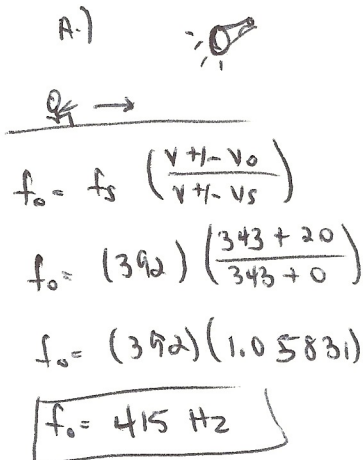 A.)
f₀ = fs (V +/- Vo / V +/- Vs)
f₀ = (392) (343 + 20 / 343 + 0)
f₀ = (392)(1.05831)
f₀ = 415 Hz